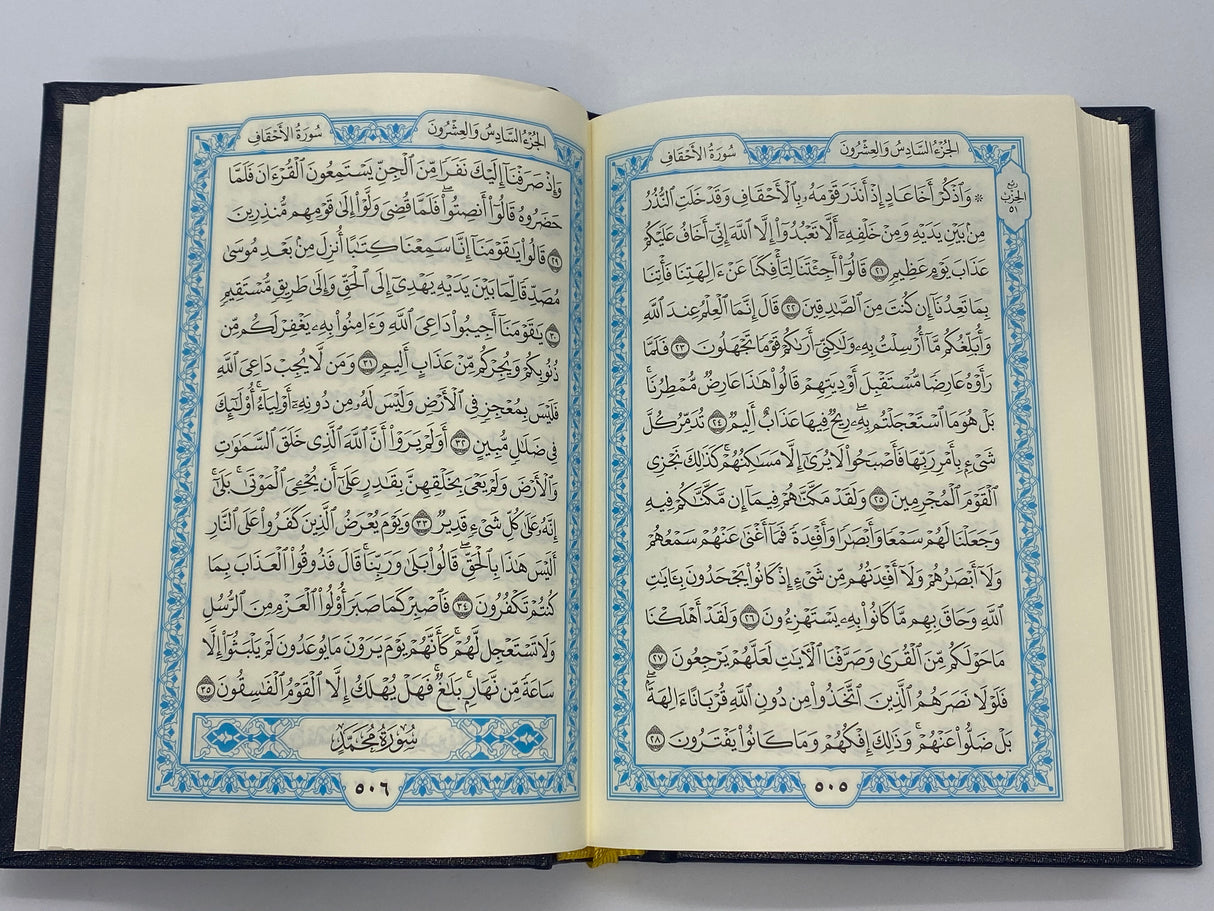 الجزء السادس والعشرون
سورة الأحقاف
ربع
الحزب
٥١
۞ وَٱذْكُرْ أَخَا عَادٍ إِذْ أَنذَرَ قَوْمَهُۥ بِٱلْأَحْقَافِ وَقَدْ خَلَتِ ٱلنُّذُرُ
مِنۢ بَيْنِ يَدَيْهِ وَمِنْ خَلْفِهِۦٓ أَلَّا تَعْبُدُوٓا۟ إِلَّا ٱللَّهَ إِنِّىٓ أَخَافُ عَلَيْكُمْ
عَذَابَ يَوْمٍ عَظِيمٍ ٢١ قَالُوٓا۟ أَجِئْتَنَا لِتَأْفِكَنَا عَنْ ءَالِهَتِنَا فَأْتِنَا
بِمَا تَعِدُنَآ إِن كُنتَ مِنَ ٱلصَّٰدِقِينَ ٢٢ قَالَ إِنَّمَا ٱلْعِلْمُ عِندَ ٱللَّهِ
وَأُبَلِّغُكُم مَّآ أُرْسِلْتُ بِهِۦ وَلَٰكِنِّىٓ أَرَىٰكُمْ قَوْمًا تَجْهَلُونَ ٢٣ فَلَمَّا
رَأَوْهُ عَارِضًا مُّسْتَقْبِلَ أَوْدِيَتِهِمْ قَالُوا۟ هَٰذَا عَارِضٌ مُّمْطِرُنَا ۚ
بَلْ هُوَ مَا ٱسْتَعْجَلْتُم بِهِۦ ۖ رِيحٌ فِيهَا عَذَابٌ أَلِيمٌ ٢٤ تُدَمِّرُ كُلَّ
شَىْءٍۭ بِأَمْرِ رَبِّهَا فَأَصْبَحُوا۟ لَا يُرَىٰٓ إِلَّا مَسَٰكِنُهُمْ ۚ كَذَٰلِكَ نَجْزِى
ٱلْقَوْمَ ٱلْمُجْرِمِينَ ٢٥ وَلَقَدْ مَكَّنَّٰهُمْ فِيمَآ إِن مَّكَّنَّٰكُمْ فِيهِ
وَجَعَلْنَا لَهُمْ سَمْعًا وَأَبْصَٰرًا وَأَفْـِٔدَةً فَمَآ أَغْنَىٰ عَنْهُمْ سَمْعُهُمْ
وَلَآ أَبْصَٰرُهُمْ وَلَآ أَفْـِٔدَتُهُم مِّن شَىْءٍ إِذْ كَانُوا۟ يَجْحَدُونَ بِـَٔايَٰتِ
ٱللَّهِ وَحَاقَ بِهِم مَّا كَانُوا۟ بِهِۦ يَسْتَهْزِءُونَ ٢٦ وَلَقَدْ أَهْلَكْنَا
مَا حَوْلَكُم مِّنَ ٱلْقُرَىٰ وَصَرَّفْنَا ٱلْـَٔايَٰتِ لَعَلَّهُمْ يَرْجِعُونَ ٢٧
فَلَوْلَا نَصَرَهُمُ ٱلَّذِينَ ٱتَّخَذُوا۟ مِن دُونِ ٱللَّهِ قُرْبَانًا ءَالِهَةًۢ ۖ
بَلْ ضَلُّوا۟ عَنْهُمْ ۚ وَذَٰلِكَ إِفْكُهُمْ وَمَا كَانُوا۟ يَفْتَرُونَ ٢٨
٥٠٥
الجزء السادس والعشرون
سورة الأحقاف
وَإِذْ صَرَفْنَآ إِلَيْكَ نَفَرًا مِّنَ ٱلْجِنِّ يَسْتَمِعُونَ ٱلْقُرْءَانَ فَلَمَّا
حَضَرُوهُ قَالُوٓا۟ أَنصِتُوا۟ ۖ فَلَمَّا قُضِىَ وَلَّوْا۟ إِلَىٰ قَوْمِهِم مُّنذِرِينَ
٢٩ قَالُوا۟ يَٰقَوْمَنَآ إِنَّا سَمِعْنَا كِتَٰبًا أُنزِلَ مِنۢ بَعْدِ مُوسَىٰ
مُصَدِّقًا لِّمَا بَيْنَ يَدَيْهِ يَهْدِىٓ إِلَى ٱلْحَقِّ وَإِلَىٰ طَرِيقٍ مُّسْتَقِيمٍ
٣٠ يَٰقَوْمَنَآ أَجِيبُوا۟ دَاعِىَ ٱللَّهِ وَءَامِنُوا۟ بِهِۦ يَغْفِرْ لَكُم مِّن
ذُنُوبِكُمْ وَيُجِرْكُم مِّنْ عَذَابٍ أَلِيمٍ ٣١ وَمَن لَّا يُجِبْ دَاعِىَ ٱللَّهِ
فَلَيْسَ بِمُعْجِزٍ فِى ٱلْأَرْضِ وَلَيْسَ لَهُۥ مِن دُونِهِۦٓ أَوْلِيَآءُ ۚ أُو۟لَٰٓئِكَ
فِى ضَلَٰلٍ مُّبِينٍ ٣٢ أَوَلَمْ يَرَوْا۟ أَنَّ ٱللَّهَ ٱلَّذِى خَلَقَ ٱلسَّمَٰوَٰتِ
وَٱلْأَرْضَ وَلَمْ يَعْىَ بِخَلْقِهِنَّ بِقَٰدِرٍ عَلَىٰٓ أَن يُحْـِۧىَ ٱلْمَوْتَىٰ ۚ بَلَىٰٓ
إِنَّهُۥ عَلَىٰ كُلِّ شَىْءٍ قَدِيرٌ ٣٣ وَيَوْمَ يُعْرَضُ ٱلَّذِينَ كَفَرُوا۟ عَلَى ٱلنَّارِ
أَلَيْسَ هَٰذَا بِٱلْحَقِّ ۖ قَالُوا۟ بَلَىٰ وَرَبِّنَا ۚ قَالَ فَذُوقُوا۟ ٱلْعَذَابَ بِمَا
كُنتُمْ تَكْفُرُونَ ٣٤ فَٱصْبِرْ كَمَا صَبَرَ أُو۟لُوا۟ ٱلْعَزْمِ مِنَ ٱلرُّسُلِ
وَلَا تَسْتَعْجِل لَّهُمْ ۚ كَأَنَّهُمْ يَوْمَ يَرَوْنَ مَا يُوعَدُونَ لَمْ يَلْبَثُوٓا۟ إِلَّا
سَاعَةً مِّن نَّهَارٍۭ ۚ بَلَٰغٌ ۚ فَهَلْ يُهْلَكُ إِلَّا ٱلْقَوْمُ ٱلْفَٰسِقُونَ ٣٥
سُورَةُ مُحَمَّدٍ
٥٠٦